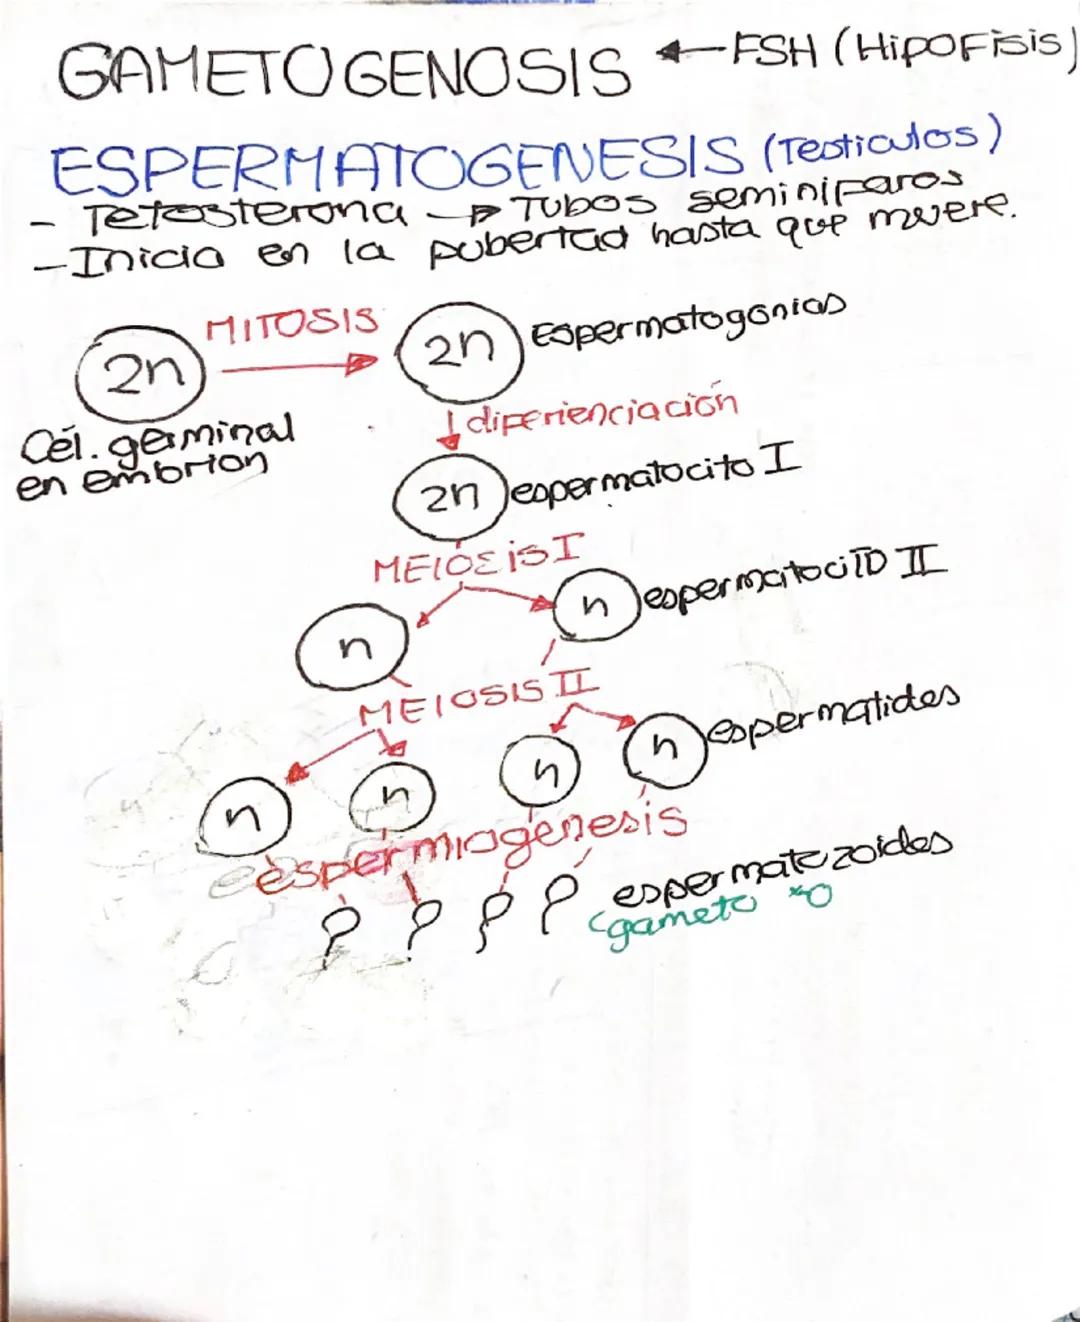 GAMETOGENOSIS ←FSH (Hipofisis)
ESPERMATOGENESIS (Testiculos)
- Tetosterona → Tubos seminifaros
- Inicia en la pubertad hasta que muere.
MITOSIS
2n
2n
Espermatogonias
Cél. germinal
en embrion
diferienciación
2n
espermatocito I
MEIOSisI
n
n
espermatocito II
MEIOSIS II
n
n
n
n
espermatides
espermiogenesis
espermatezoides
gameto